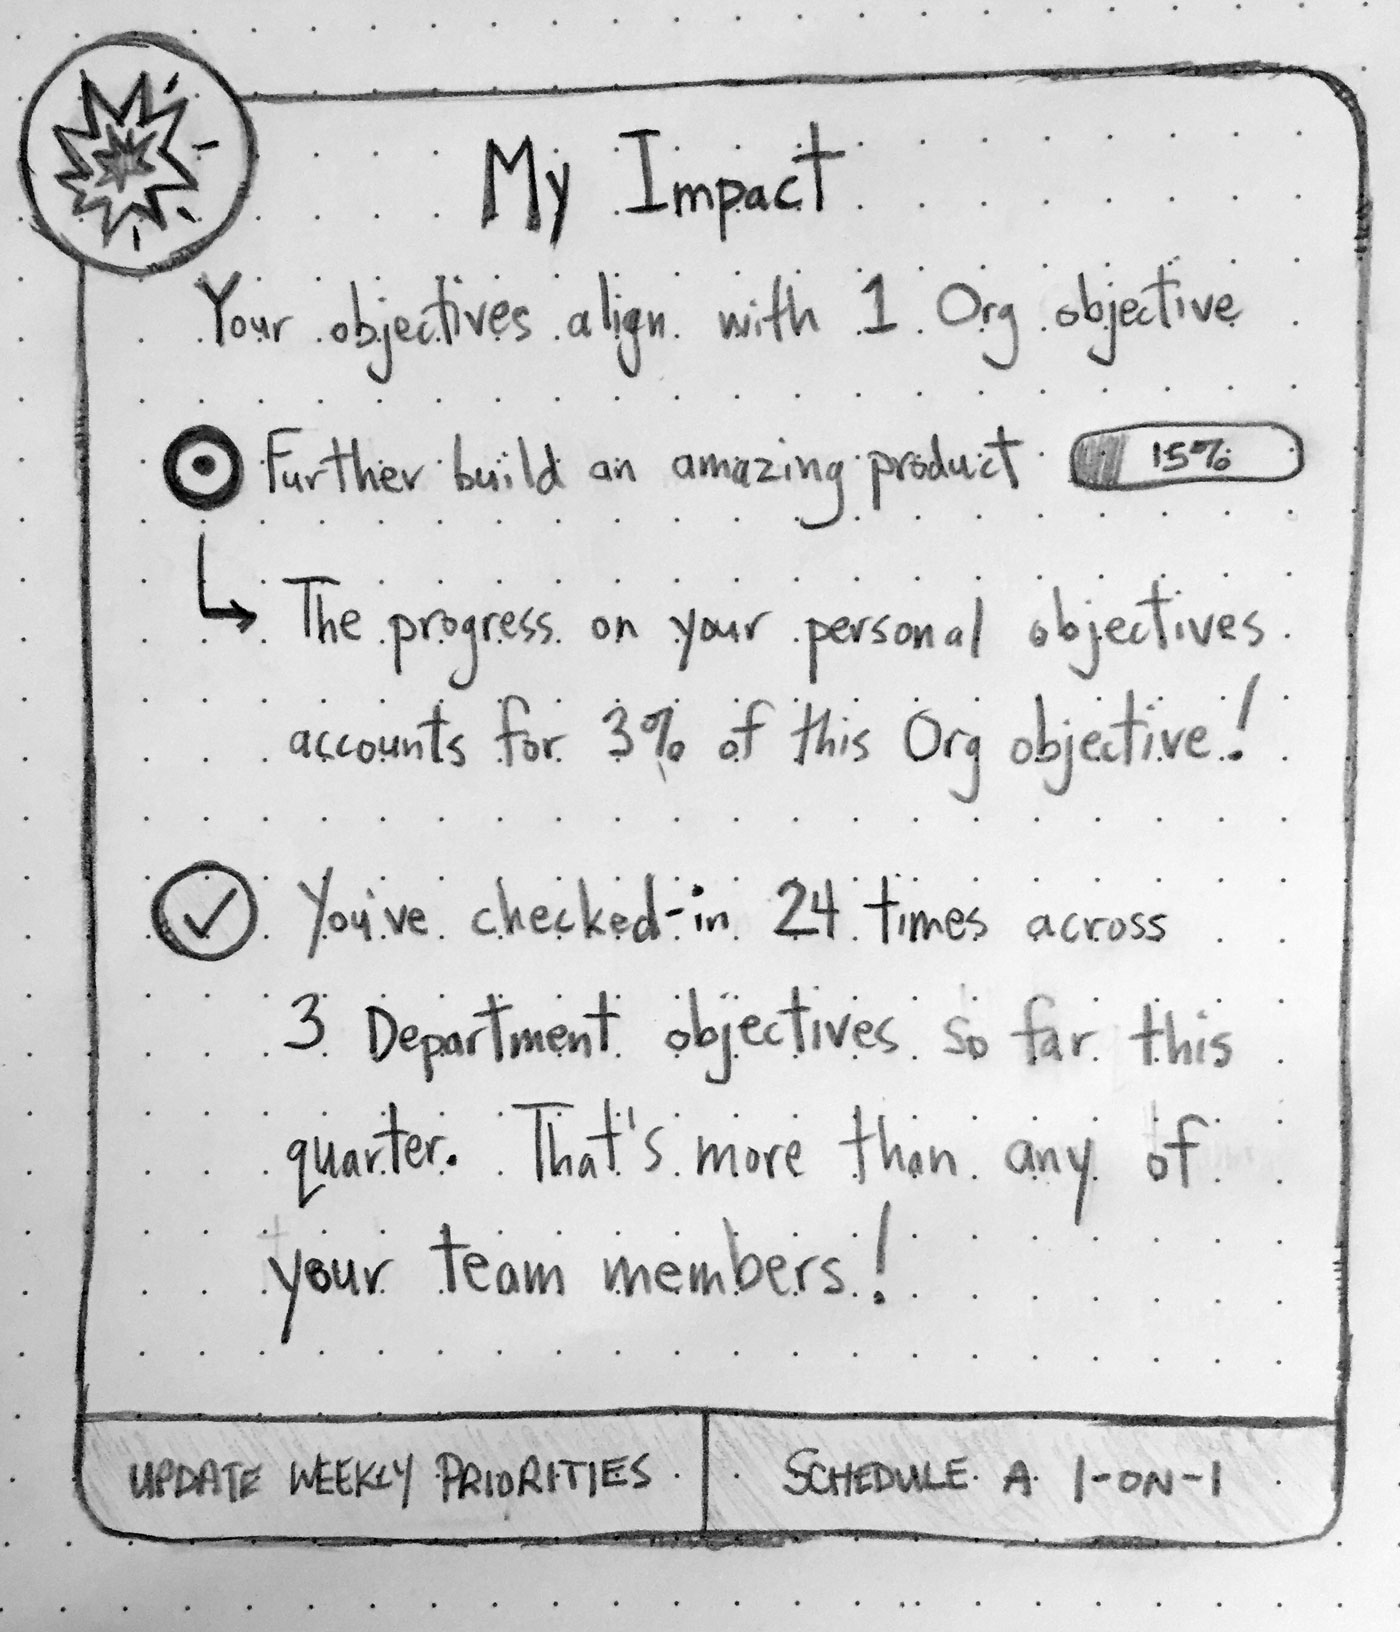 My Impact
Your objectives align with 1 Org objective
Further build an amazing product 15%
The progress on your personal objectives
accounts for 3% of this Org objective!
You've checked-in 24 times across
3 Department objectives so far this
quarter. That's more than any of
your team members!
UPDATE WEEKLY PRIORITIES SCHEDULE A 1-ON-1